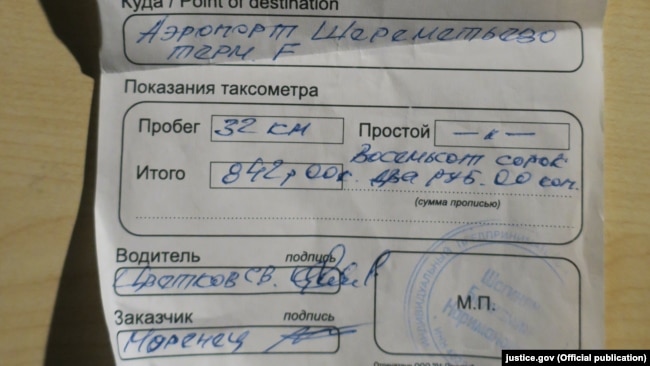 Куда / Point of destination
Аэропорт Шереметьево
терм. F
Показания таксометра
Пробег 32 км Простой — к —
Итого 842 р 00 к. Восемьсот сорок
два руб. 00 коп.
(сумма прописью)
Водитель подпись
С.В.
Заказчик подпись
Моренец
М.П.
ИНДИВИДУАЛЬНЫЙ ПРЕДПРИНИМАТЕЛЬ
justice.gov (Official publication)